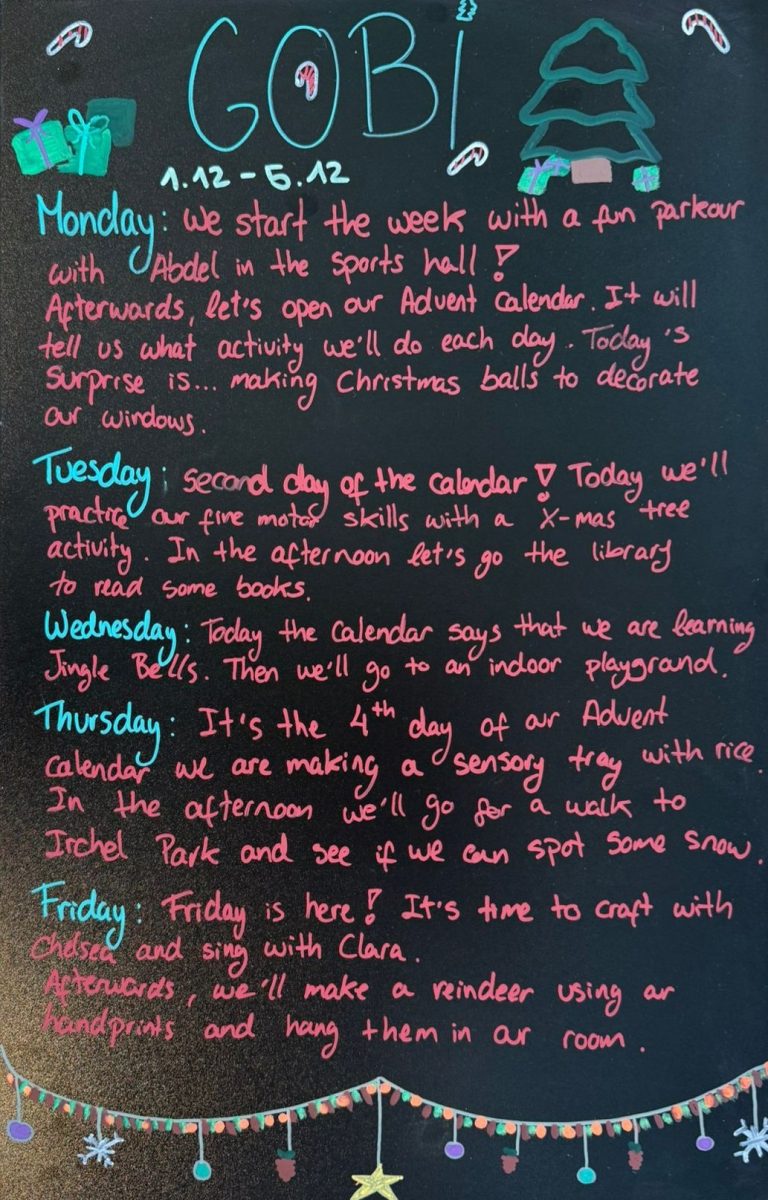 GOBI
1.12 - 5.12
Monday: We start the week with a fun parkour
with Abdel in the sports hall!
Afterwards, let's open our Advent Calendar. It will
tell us what activity we'll do each day. Today's
Surprise is... making Christmas balls to decorate
our windows.
Tuesday: Second day of the calendar! Today we'll
practice our fine motor skills with a X-mas tree
activity. In the afternoon let's go the library
to read some books.
Wednesday: Today the Calendar says that we are learning
Jingle Bells. Then we'll go to an indoor playground.
Thursday: It's the 4th day of our Advent
Calendar we are making a sensory tray with rice.
In the afternoon we'll go for a walk to
Irchel Park and see if we can spot some snow.
Friday: Friday is here! It's time to craft with
Chelsea and sing with Clara.
Afterwards, we'll make a reindeer using our
handprints and hang them in our room.